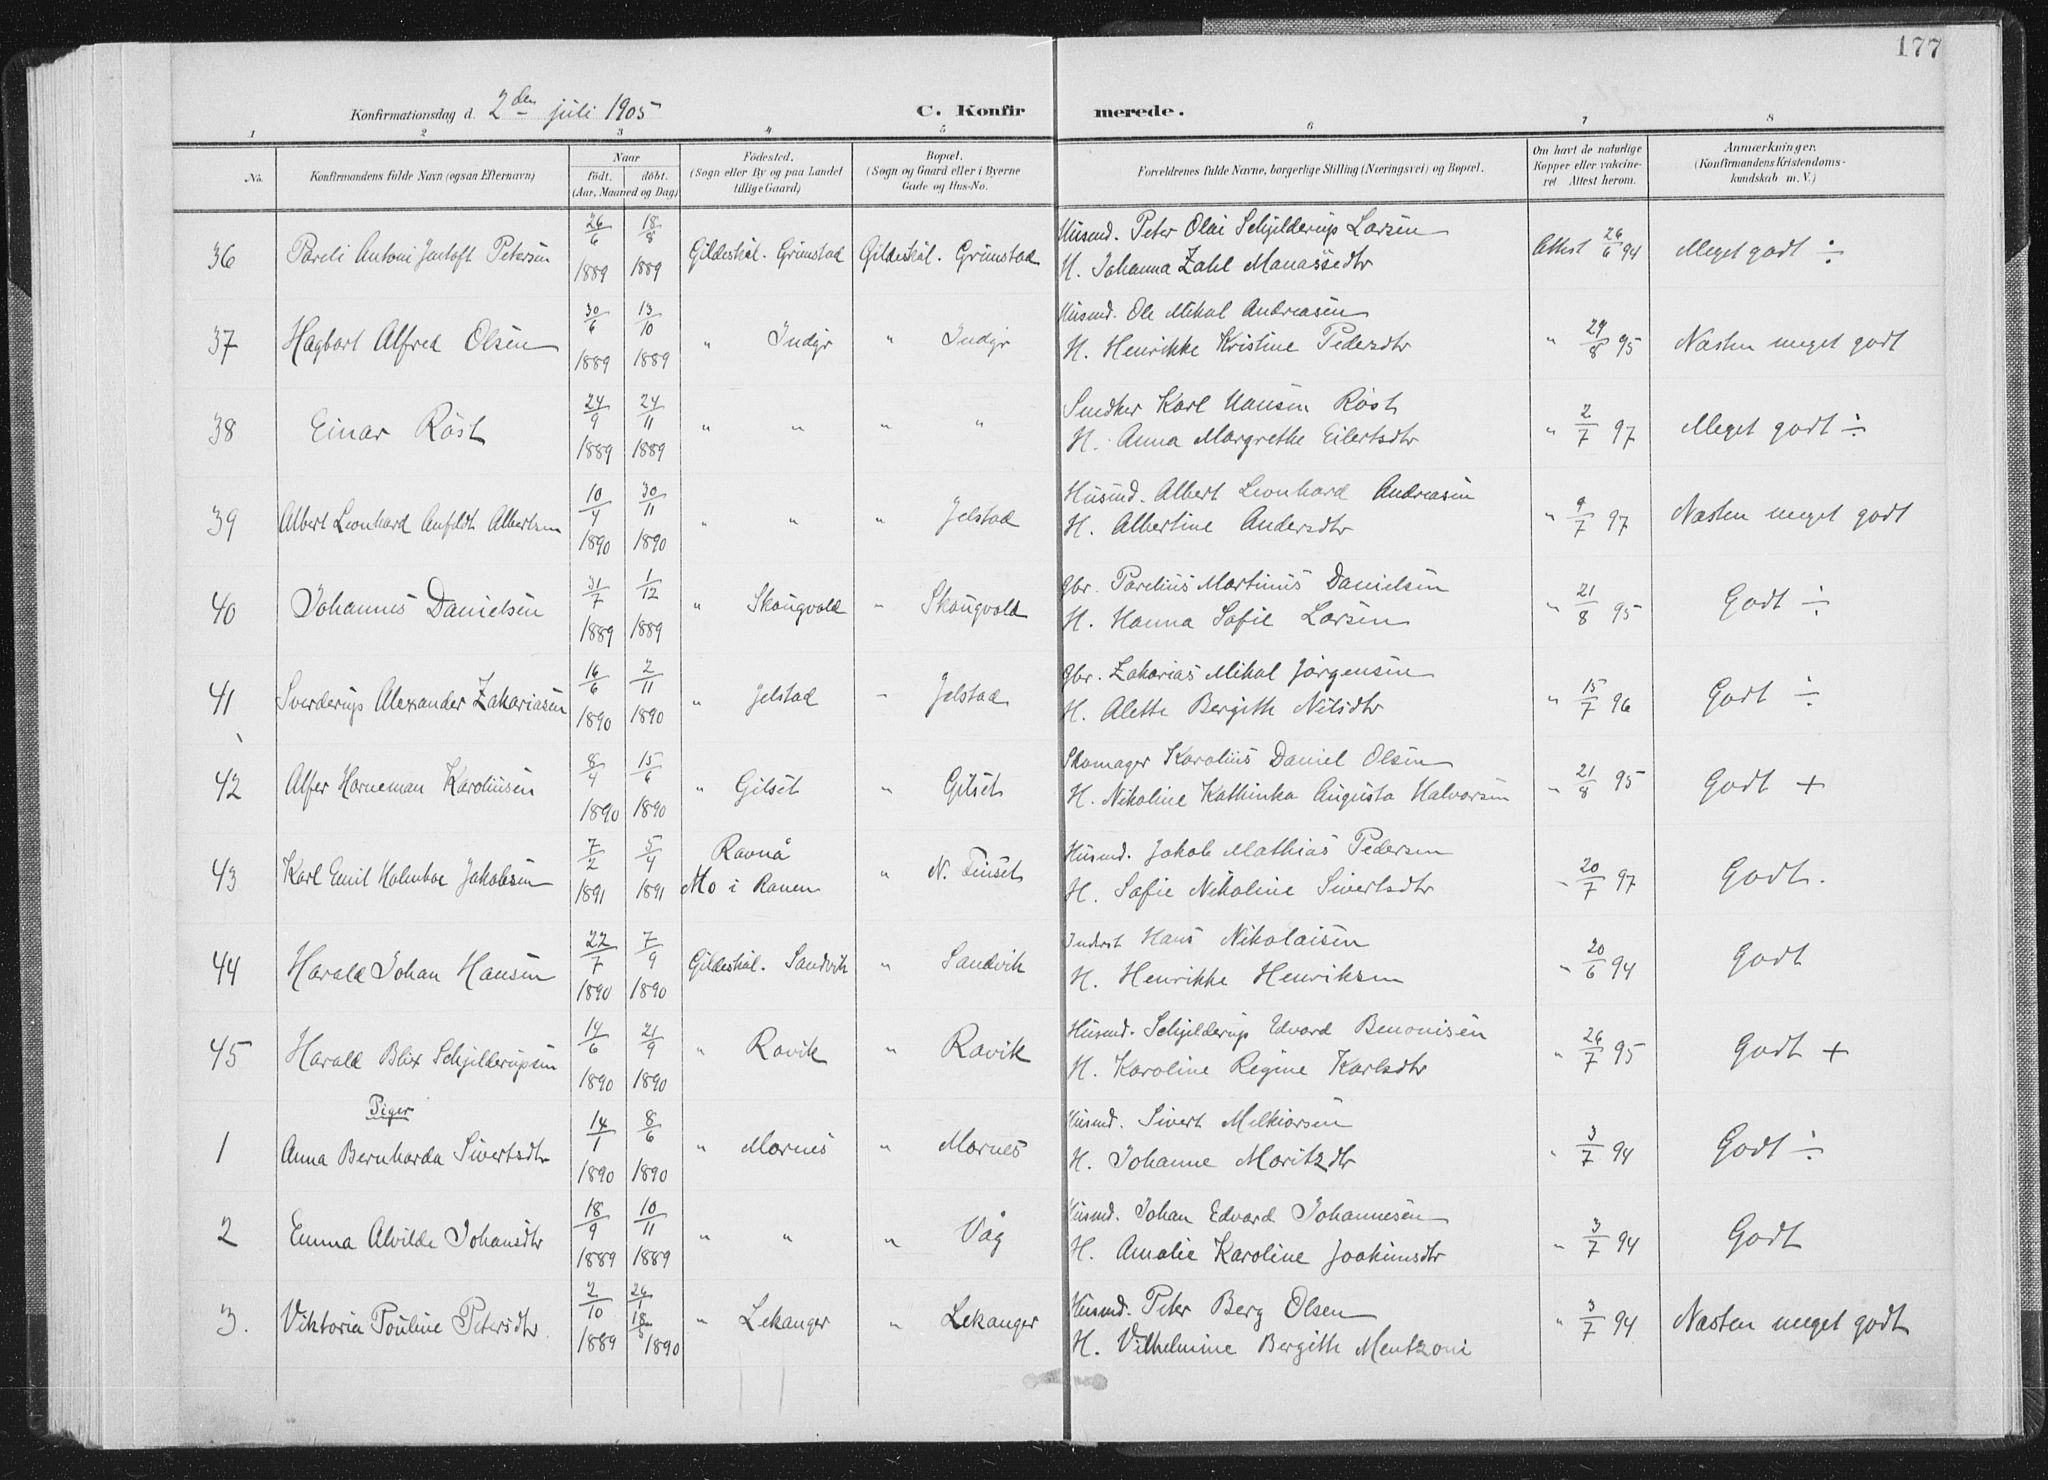 177
Konfirmationsdag d. 2den juli 1905
C. Konfirmerede.
1 2 3 4 5 6 7 8
No. Konfirmandens fulde Navn (ogsaa Efternavn) Naar født. døbt. (Aar, Maaned og Dag) Fødested. (Sogn eller By og paa Landet tillige Gaard) Bopæl. (Sogn og Gaard eller i Byerne Gade og Hus-No. Forældrenes fulde Navne, borgerlige Stilling (Næringsvei) og Bopæl. Om havt de naturlige Kopper eller vakcineret Attest herom. Anmærkninger. (Konfirmandens Kristendomskundskab m. V.)
36 Pareli Antoni Petersen 26/6 1889 18/8 1889 Gildeskål. Grimstad Gildeskål. Grimstad Husmd. Peter Olai Schjelderup Larsen
H. Johanna Zahl Manassedtr Attest 26/6 94 Meget godt ÷
37 Hagbart Alfred Olsen 30/6 1889 13/10 1889 " Indyr " Indyr Husmd. Ole Mikal Andreasen
H. Henrikke Kristine Pedersdtr " 29/8 95 Næsten meget godt
38 Einar Röst 24/9 1889 24/11 1889 " " " " Snedker Karl Hansen Röst
H. Anna Margrethe Eilertsdtr " 2/7 97 Meget godt ÷
39 Albert Leonhard Anfeldt Albertsen 10/4 1890 30/11 1890 " " " Jelstad Husmd. Albert Leonhard Andreasen
H. Albertine Andersdtr " 9/7 97 Næsten meget godt
40 Johannes Danielsen 31/7 1889 1/12 1889 " Skaugvold " Skaugvold Gbr. Parelius Martinus Danielsen
H. Hanna Sofie Larsen " 21/8 95 Godt ÷
41 Sverderup Alexander Zakariasen 16/6 1890 2/11 1890 " Jelstad " Jelstad Gbr. Zakarias Mikal Jörgensen
H. Alette Bergitte Nilsdtr " 15/7 96 Godt ÷
42 Alfer Horneman Karoliusen 8/4 1890 15/6 1890 " Gilset " Gilset Skomager Karolius Daniel Olsen
H. Nikoline Kathinka Augusta Halvorsen " 21/8 95 Godt +
43 Karl Emil Holmboe Jakobsen 7/2 1891 5/4 1891 Ravnå Mo i Ranen " N. Finset Husmd. Jakob Mathias Pedersen
H. Sofie Nikoline Sivertsdtr " 20/7 97 Godt.
44 Harald Johan Hansen 22/7 1890 7/9 1890 Gildeskål. Sandvik " Sandvik Inderst Hans Nikolaisen
H. Henrikke Henriksen " 20/6 94 Godt
45 Harald Blix Schjelderupsen 14/6 1890 21/9 1890 " Ravik " Ravik Husmd. Schjelderup Edvard Benonisen
H. Karoline Regine Karlsdtr " 26/7 95 Godt +
Piger
1 Anna Bernharda Sivertsdtr 14/1 1890 8/6 1890 " Mornes " Mornes Husmd. Sivert Melkiorsen
H. Johanne Moritzdtr " 3/7 94 Godt ÷
2 Emma Alvilde Johansdtr 18/9 1889 10/11 1889 " " " Våg Husmd. Johan Edvard Johannesen
H. Amalie Karoline Joakimsdtr " 3/7 94 Godt
3. Viktoria Pouline Petersdtr. 2/10 1889 26/1 18/5 1890 " Lekanger " Lekanger Husmd. Peter Berg Olsen
H. Vilhelmine Bergitte Mentzoni " 3/7 94 Næsten meget godt